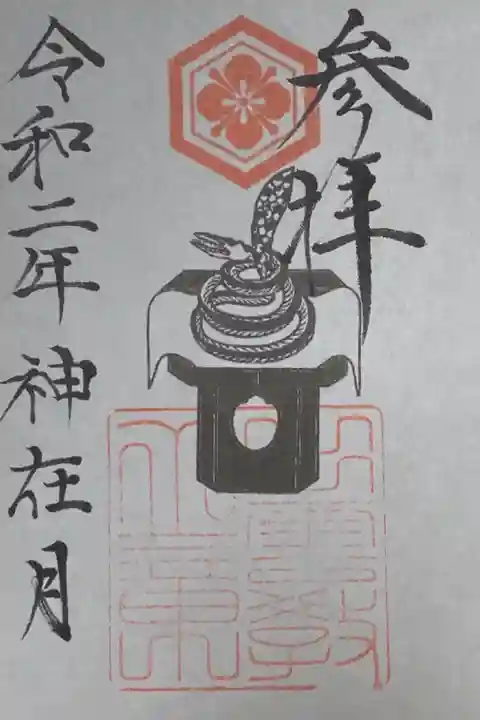 参拝
令和二年神在月